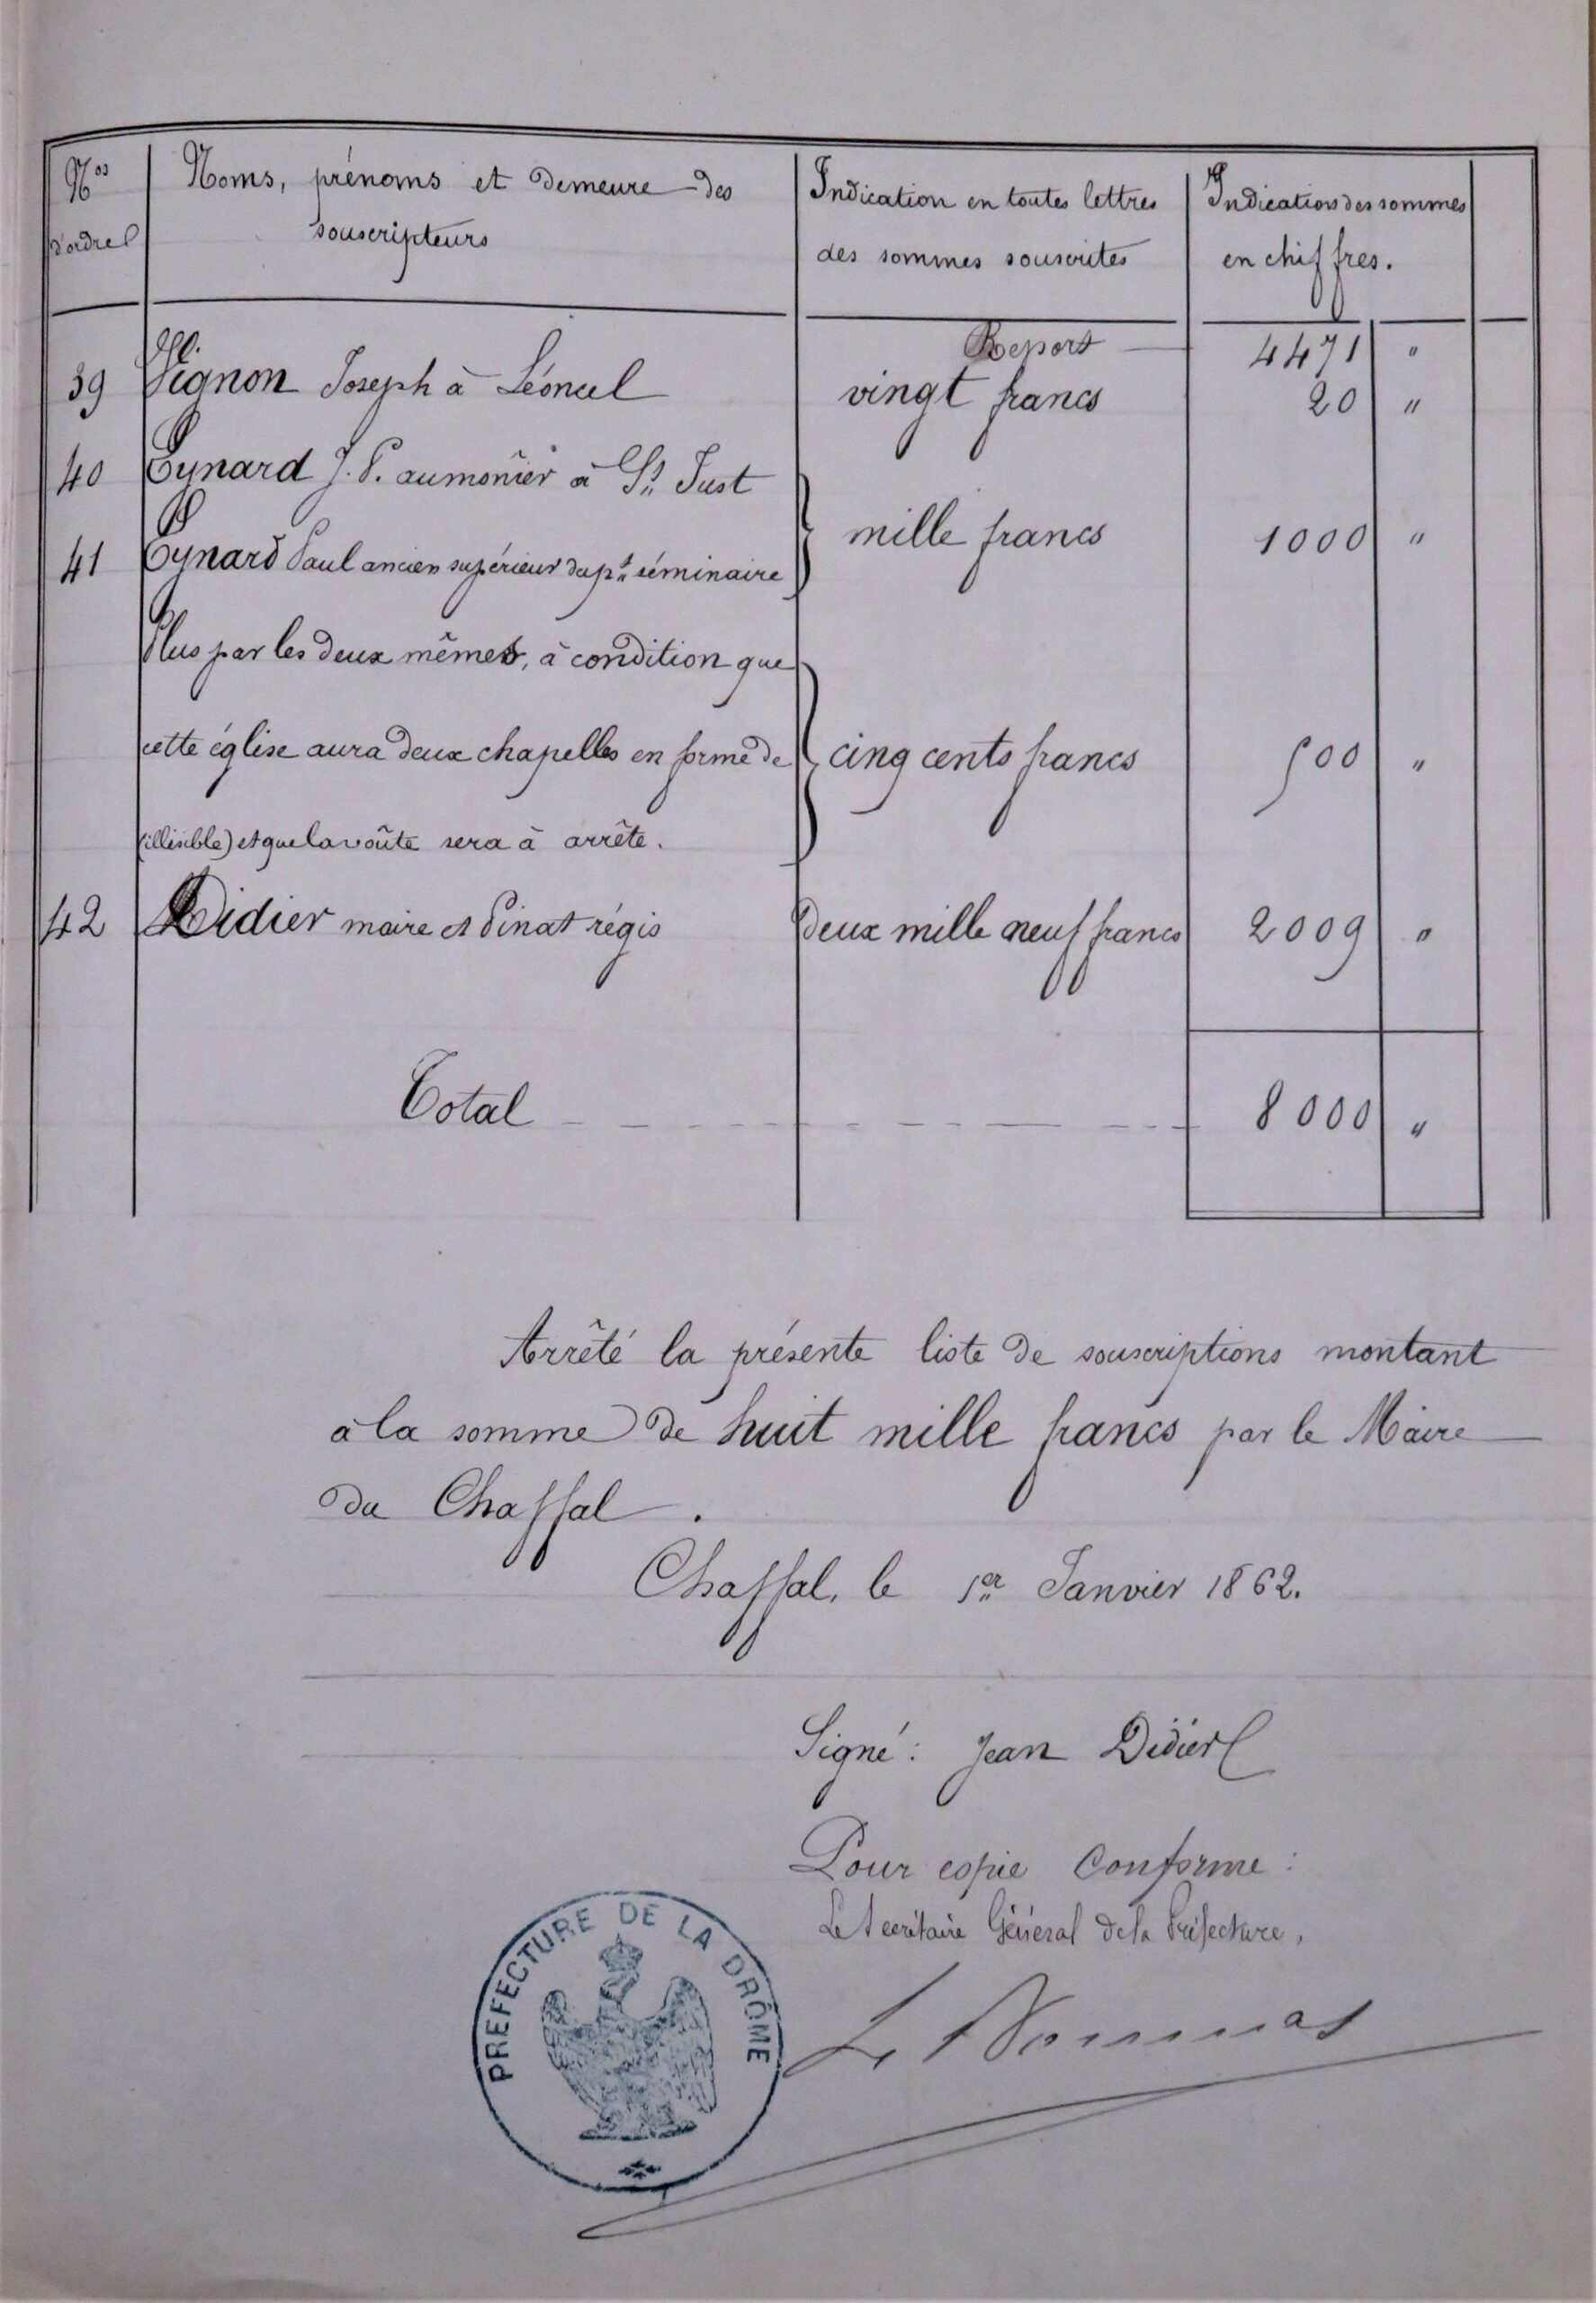 Nos d'ordre Noms, prénoms et demeure des souscripteurs Indication en toutes lettres des sommes souscrites Indications des sommes en chiffres.
Report 4471 "
39 Vignon Joseph à Léoncel vingt francs 20 "
40 Eynard J. P. aumônier à St Just
41 Eynard Paul ancien supérieur du pt séminaire mille francs 1000 "
Plus par les deux mêmes, à condition que
cette église aura deux chapelles en forme de cinq cents francs 500 "
(illisible) et que la voûte sera à arrête.
42 Didier maire et Pinat régis deux mille neuf francs 2009 "
Total 8000 "
Arrêté la présente liste de souscriptions montant
à la somme de huit mille francs par le Maire
du Chaffal.
Chaffal, le 1er Janvier 1862.
Signé: Jean Didier
Pour copie conforme:
Le Secrétaire Général de la Préfecture,
PREFECTURE DE LA DRÔME